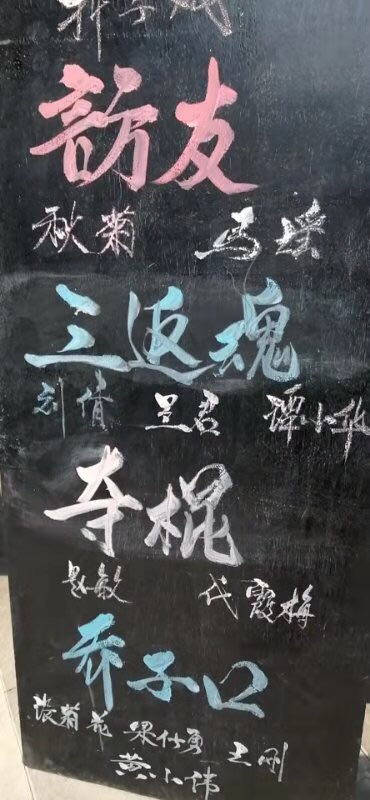 折子戏
訪友
秋菊 马瑤
三返魂
刘倩 兰君 谭小华
夺棍
敏 代霞梅
乔子口
菊花 梁仕勇 王刚
黄小伟